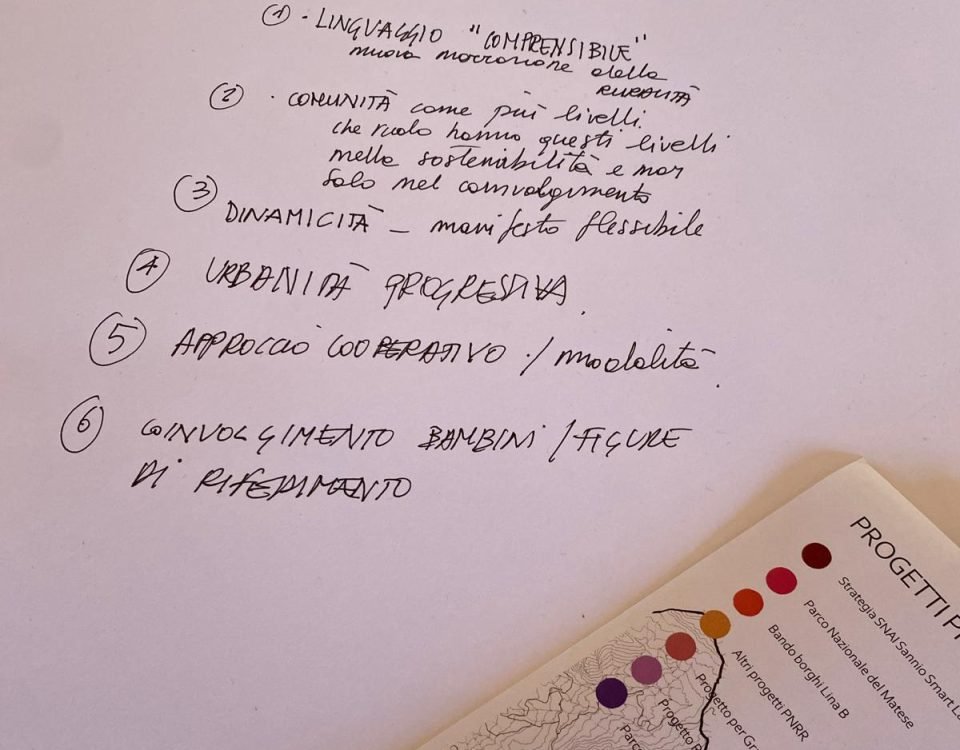 ① · LINGUAGGIO "COMPRENSIBILE"
nuova narrazione della
RURALITÀ
② · COMUNITÀ come più livelli.
che ruolo hanno questi livelli
nella sostenibilità e non
solo nel coinvolgimento
③ DINAMICITÀ – manifesto flessibile
④ URBANITÀ PROGRESSIVA.
⑤ APPROCCIO COOPERATIVO / modalità.
⑥ COINVOLGIMENTO BAMBINI / FIGURE
DI RIFERIMENTO
PROGETTI P
Strategia SNAI Sannio Smart La
Parco Nazionale del Matese
Bando borghi Lina B
Altri progetti PNRR
Progetto per Gr
Progetto
Parco